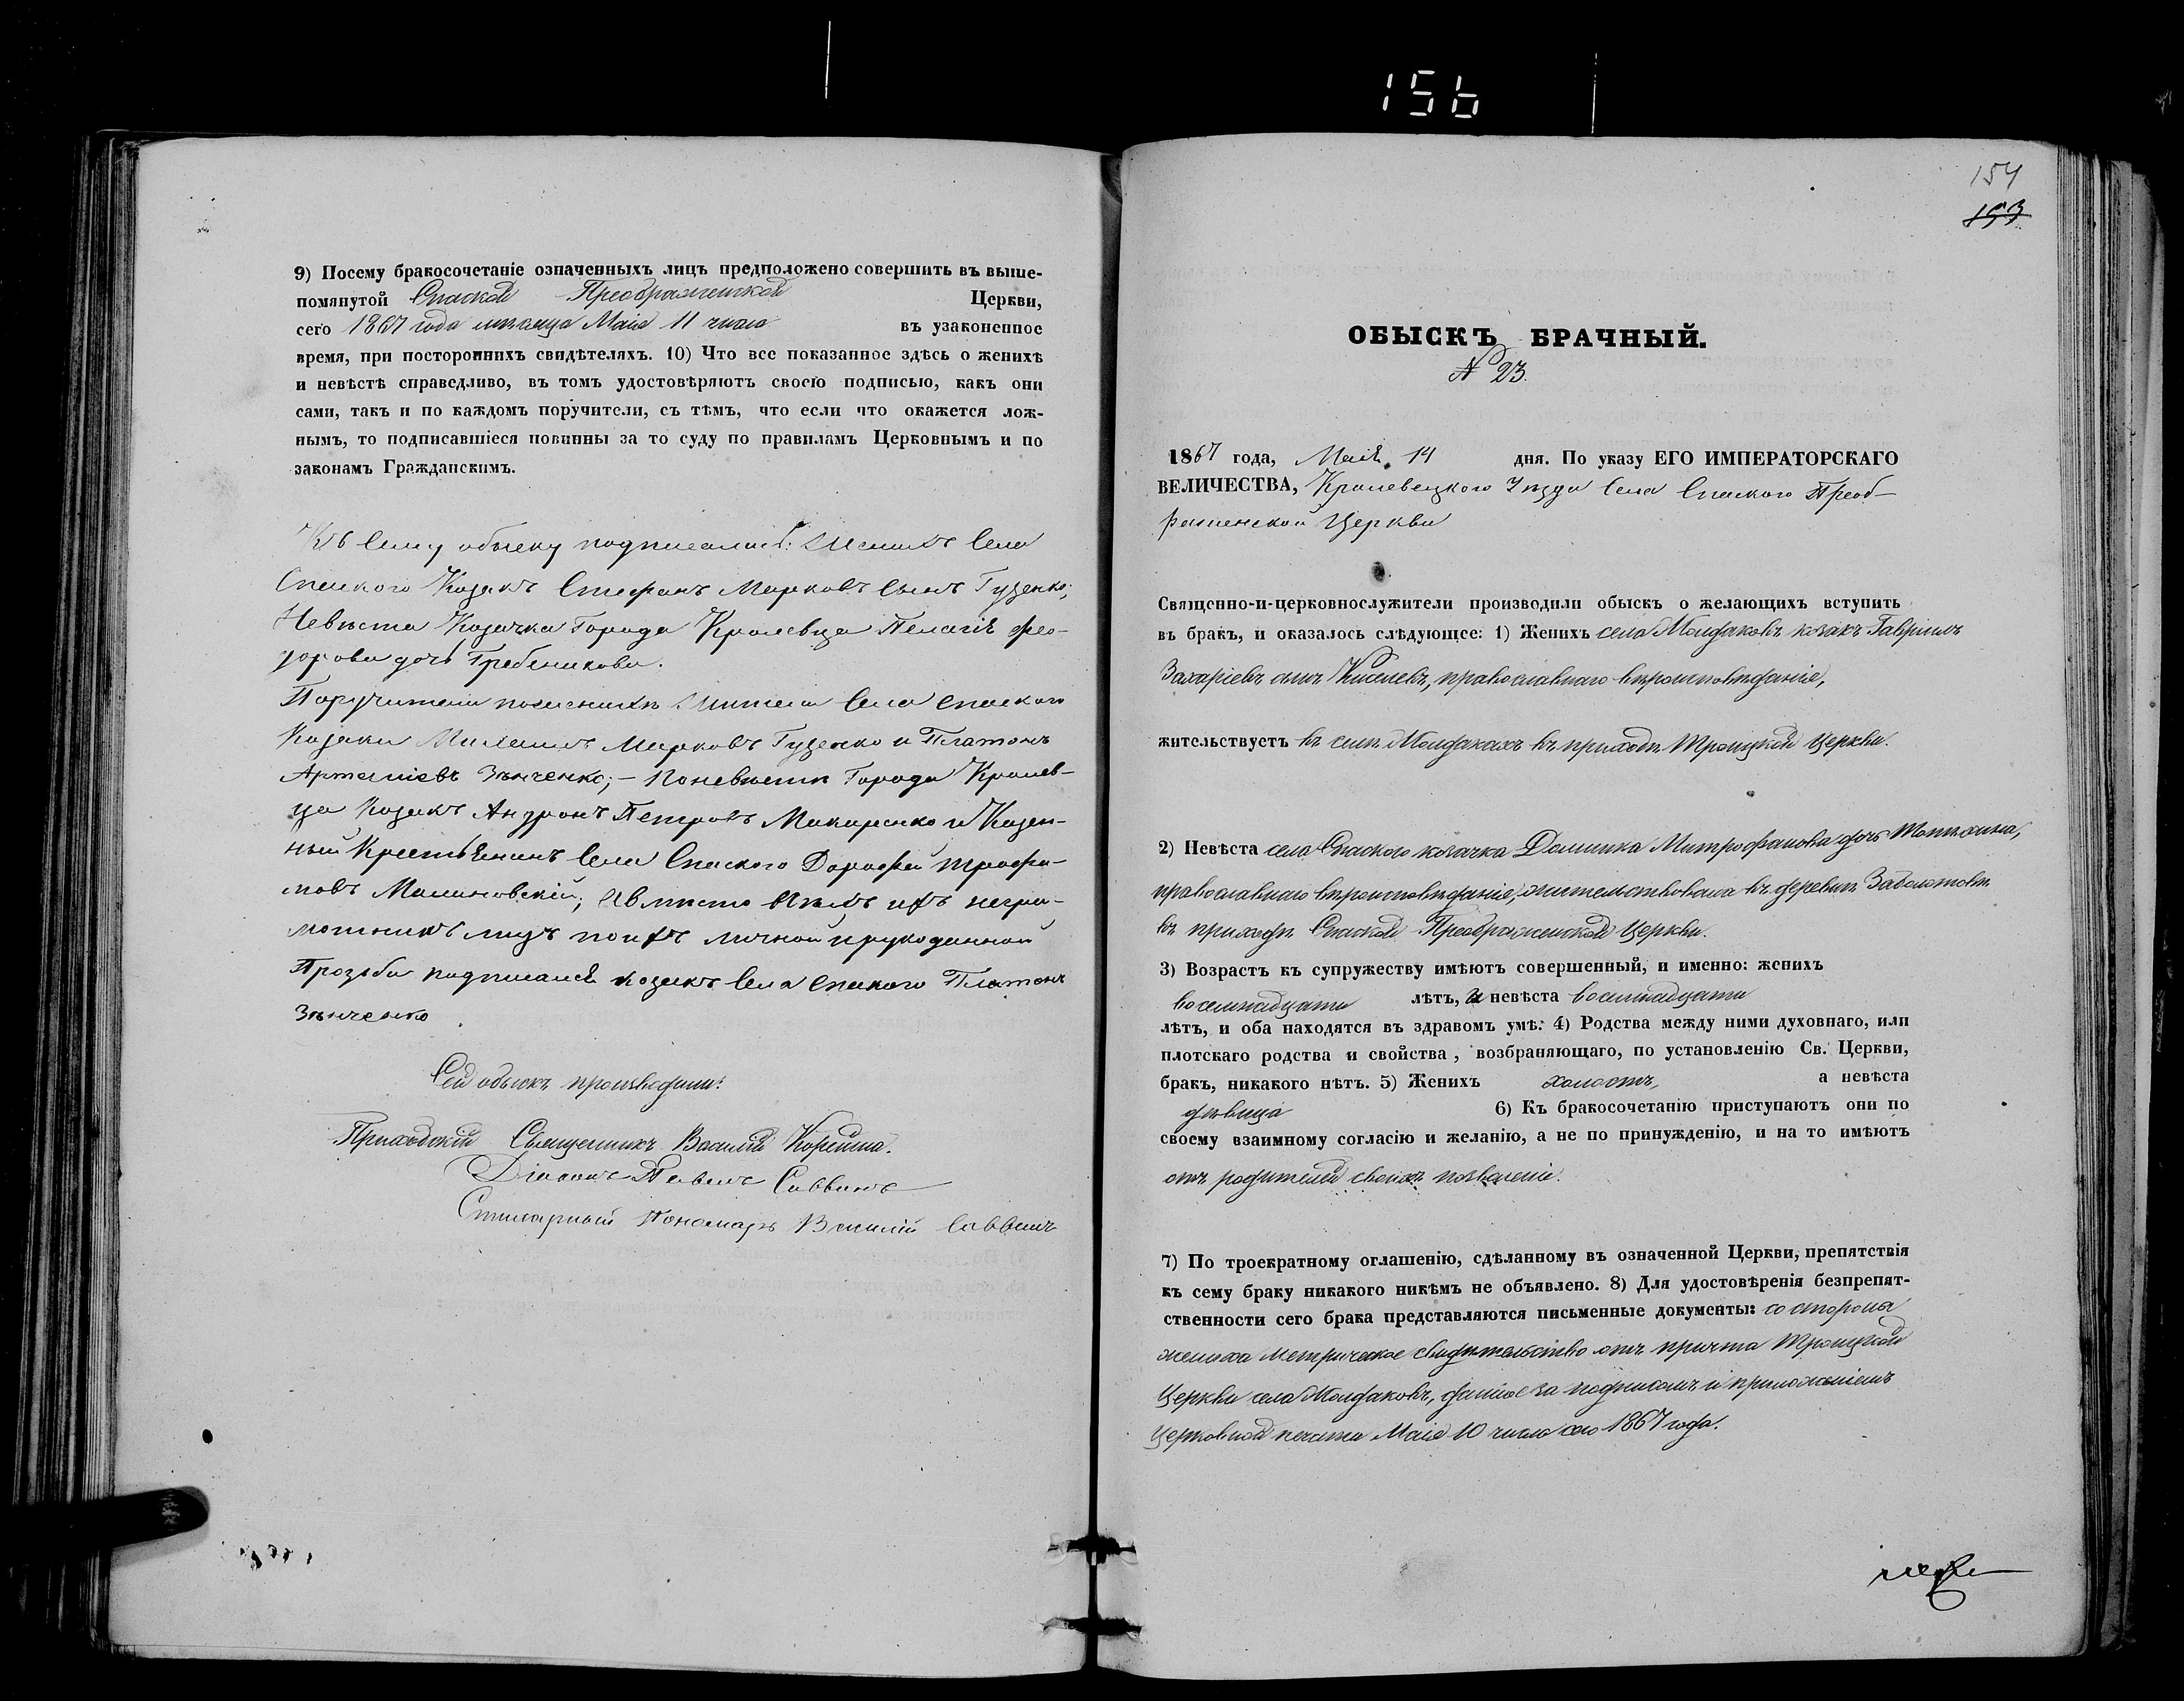 156
9) Посему бракосочетаніе означенныхъ лицъ предположено совершить въ выше-
помянутой Спаской Преображенской Церкви,
сего 1867 года мѣсяца Маія 11 числа въ узаконенное
время, при постороннихъ свидѣтеляхъ. 10) Что все показанное здѣсь о женихѣ
и невѣстѣ справедливо, въ томъ удостовѣряютъ своею подписью, какъ они
сами, такъ и по каждомъ поручители, съ тѣмъ, что если что окажется лож-
нымъ, то подписавшіеся повинны за то суду по правиламъ Церковнымъ и по
законамъ Гражданскимъ.
Къ сему обыску подписались: Женихъ Села
Спаского Козакъ Стефанъ Марковъ сынъ Гузенко;
Невѣста Козачка Города Кролевца Пелагія Фео-
дорова дочь Гребеникова.
Поручители по женихѣ жители Села Спаского
Козаки Михаилъ Марковъ Гузенко и Платонъ
Артеміевъ Зѣнченко; – по невѣстѣ Города Кролев-
ца Козакъ Андронъ Петровъ Макаренко и Казен-
ный Крестьянинъ Села Спаского Дорофей Трофи-
мовъ Малиновскій; А вмѣсто всѣхъ ихъ негра-
мотныхъ лицъ по ихъ личной и рукоданной
Прозьбѣ подписался козакъ Села Спаского Платонъ
Зѣнченко
Сей обыскъ производили:
Приходскій Священникъ Василій Корейша.
Діаконъ Павелъ Саввичъ
Стихарный Пономарь Василій Саввичъ
154
153
ОБЫСКЪ БРАЧНЫЙ.
№ 23.
1867 года, Маія 14 дня. По указу ЕГО ИМПЕРАТОРСКАГО
ВЕЛИЧЕСТВА, Кролевецкого Уѣзда Села Спаского Преоб-
раженской Церкви
Священно-и-церковнослужители производили обыскъ о желающихъ вступить
въ бракъ, и оказалось слѣдующее: 1) Женихъ села Молдаковъ козакъ Гавріилъ
Захаріевъ сынъ Киселевъ, православнаго вѣроисповѣданія,
жительствуетъ въ селѣ Молдакахъ въ приходѣ Троицкой Церкви.
2) Невѣста села Спаского козачка Домника Митрофанова дочь
православнаго вѣроисповѣданія, жительствовала въ деревнѣ
въ приходѣ Спаской Преображенской Церкви.
3) Возрастъ къ супружеству имѣютъ совершенный, и именно: женихъ
восемнадцати лѣтъ, и невѣста восемнадцати
лѣтъ, и оба находятся въ здравомъ умѣ. 4) Родства между ними духовнаго, или
плотскаго родства и свойства, возбраняющаго, по установленію Св. Церкви,
бракъ, никакого нѣтъ. 5) Женихъ холостъ, а невѣста
дѣвица 6) Къ бракосочетанію приступаютъ они по
своему взаимному согласію и желанію, а не по принужденію, и на то имѣютъ
отъ родителей своихъ позволеніе.
7) По троекратному оглашенію, сдѣланному въ означенной Церкви, препятствія
къ сему браку никакого никѣмъ не объявлено. 8) Для удостовѣренія безпрепят-
ственности сего брака представляются письменные документы: со стороны
жениха метрическое свидѣтельство отъ причта Троицкой
Церкви села Молдаковъ, данное за подписомъ и приложеніемъ
Церковной печати Маія 10 числа сего 1867 года.